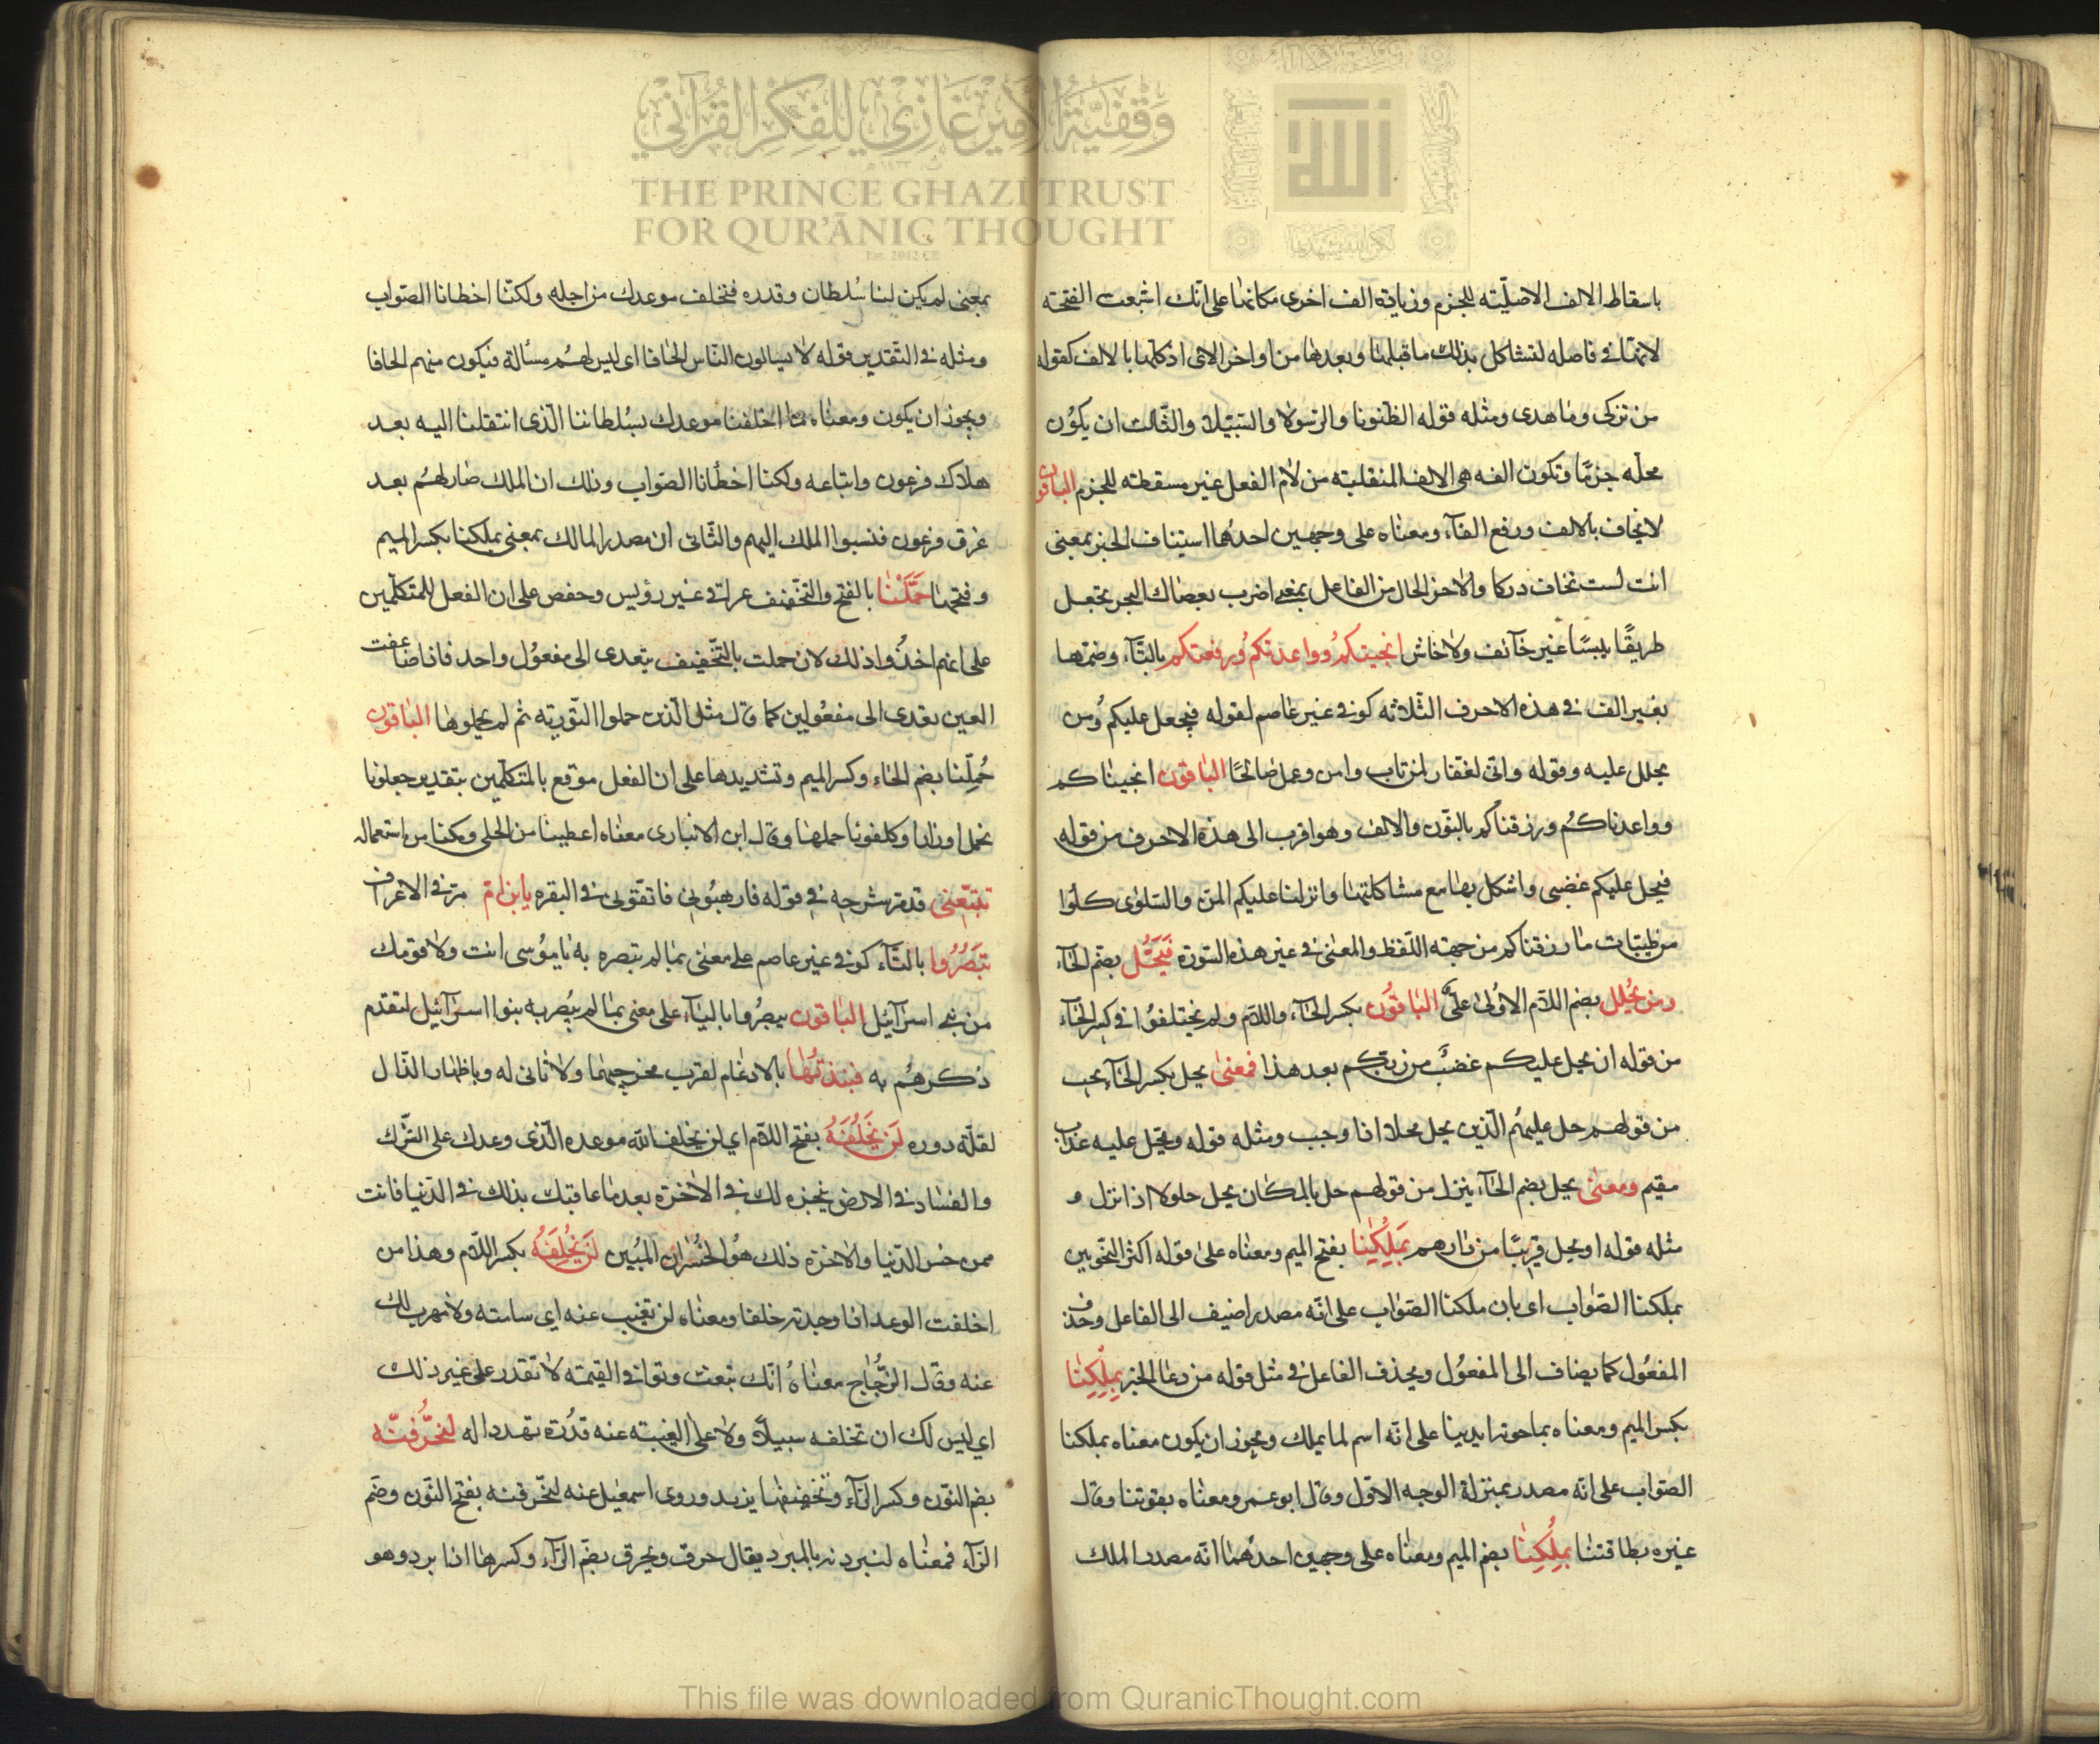 وقفية الأمير غازي للفكر القرآني
THE PRINCE GHAZI TRUST
FOR QUR'ĀNIC THOUGHT
باسقاط الالف الاصلّيته للجزم وزيادة الف اخرى مكانها على انّك اشبعت الفتحة
لانها فى فاصله لتشاكل بذلك ما قبلها وبعدها من اواخر الاى اذ كلها بالالف كقوله
من تزكى وما هدى ومثله قوله الظنونا والرسولا والسبيلا والثالث ان يكون
محله جزما وتكون الفه هى الالف المنقلبة من لام الفعل غير مسقطة للجزم الباقون
لا تخاف بالالف ورفع الفآء ومعناه على وجهين احدهما استيناف الخبر بمعنى
انت لست تخاف دركا والاخر الحال من الفاعل بمعنى اضرب بعصاك البحر تجعل
طريقًا يبسًا غير خآئف ولا خاش انجيتكم وواعدتكم ورزقتكم بالتآء وضمتها
بغير الف فى هذه الاحرف الثلاثه كوفى غير عاصم لقوله فيحل عليكم ومن
يحلل عليه وقوله وانى لغفار لمن تاب وامن وعمل صالحًا الباقون انجيناكم
وواعدناكم ورزقناكم بالنون والالف وهو اقرب الى هذه الاحرف من قوله
فيحل عليكم غضبى واشكل بها مع مشاكلتها وانزلنا عليكم المن والسلوى كلوا
من طيبات ما رزقناكم من جهة اللفظ والمعنى فى غير هذه السورة فَيَحُل بضم الحآء
ومن يحلُل بضم اللام الاولى علىّ الباقون بكسر الحآء واللام ولم يختلفوا فى كسر الحآء
من قوله ان يحل عليكم غضب من ربكم بعد هذا فمعنى يحل بكسر الحآء يجب
من قولهم حل عليهم الدين يحل محلا اذا وجب ومثله قوله ويحل عليه عذاب
مقيم ومعنى يحل بضم الحآء ينزل من قولهم حل بالمكان يحل حلولا اذا نزل و
مثله قوله او تحل قريبًا من دارهم بِمَلْكِنا بفتح الميم ومعناه على قوله اكثر النحويين
بملكنا الصواب اى بان ملكنا الصواب على انّه مصدر اضيف الى الفاعل وحذف
المفعول كما يضاف الى المفعول ويحذف الفاعل فى مثل قوله من دعا الخير بِمِلْكِنا
بكسر الميم ومعناه بما حوته ايدينا على انّه اسم لما يملك ويجوز ان يكون معناه بملكنا
الصواب على انه مصدر بمنزلة الوجه الاول وقال ابو عمرو معناه بقوتنا وقال
غيره بطاقتنا بِمُلْكِنا بضم الميم ومعناه على وجهين احدهما انّه مصدر الملك
بمعنى لم يكن لنا سُلطان وقدره فنخلف موعدك من اجله ولكنّا اخطانا الصواب
ومثله فى التقدير قوله لا يسالون الناس الحافا اى ليس لهم مسألة فيكون منهم الحافا
ويجوز ان يكون ومعناه ما اخلفنا موعدك بسُلطاننا الّذى انتقلنا اليه بعد
هلاك فرعون واتباعه ولكنا اخطأنا الصواب وذلك ان الملك صار لهم بعد
غرق فرعون فنسبوا الملك اليهم والثانى ان مصدر المالك بمعنى بملكنا بكسر الميم
وفتحها حَمَلْنا بالفتح والتخفيف عراقى غير رويس وحفص على ان الفعل للمتكلمين
على انهم اخذوا ذلك لان حملت بالتخفيف يتعدى الى مفعول واحد فاذا ضاعفت
العين تعدى الى مفعولين كما قال مثل الّذين حملوا التورية ثم لم يحملوها الباقون
حُمِّلنا بضم الحاء وكسر الميم وتشديدها على ان الفعل موقع بالمتكلمين بتقدير جعلونا
نحمل اوزارا وكلفونا حملها وقال ابن الانبارى معناه اعطينا من الحلى ومكنا من استعماله
تتبعنى قد مر شرحه فى قوله فارهبون فاتقون فى البقره يابن ام مر فى الاعراف
تبصُرُوا بالتآء كوفى غير عاصم على معنى بما لم تبصره به يا موسى انت ولا قومك
من بنى اسرآئيل الباقون يبصُروا باليآء على معنى بما لم يبصر به بنوا اسرآئيل لتقدم
ذكرهم به فنبذتها بالادغام لقرب مخرجيهما ولا ثانى له وباظهار الذال
لقلة دوره لن تخلَفه بفتح اللام اي لن يخلف الله موعده الّذى وعدك على الشرك
والفساد فى الارض ينجزه لك فى الاخرة بعد ما عاقبك بذلك فى الدّنيا فانت
ممن خسر الدّنيا والاخرة ذلك هو الخُسران المبين لن تخلِفه بكسر اللام وهذا من
اخلفت الوعد اذا وجدته خلفا ومعناه لن تغيب عنه اي سامته ولا مهرب لك
عنه وقال الزجاج معناه انك تبعث وتوافى القيمة لا تقدر على غير ذلك
اي ليس لك ان تخلفه سبيلا ولا على الغيبة عنه قدرة تهددا له لنحرقنّه
بضم النون وكسر الرآء وتخفيفها يزيد وروى اسمعيل عنه لنحرقنه بفتح النون وضم
الرآء فمعناه لنبردنه بالمبرد يقال حرق ويحرق بضم الرآء وكسرها اذا برد وهو
This file was downloaded from QuranicThought.com